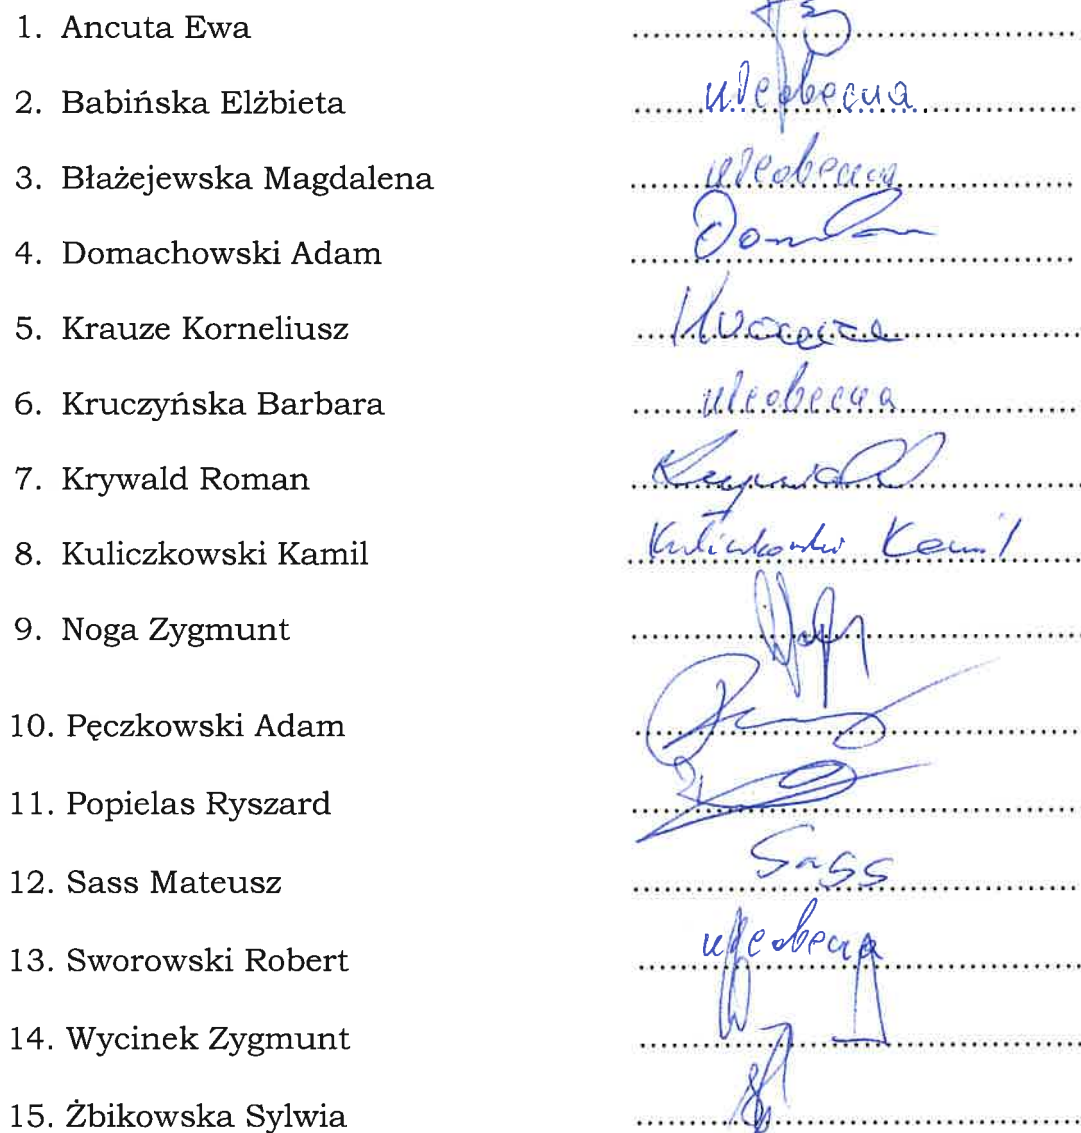 1. Ancuta Ewa
2. Babińska Elżbieta nieobecna
3. Błażejewska Magdalena nieobecna
4. Domachowski Adam
5. Krauze Korneliusz
6. Kruczyńska Barbara nieobecna
7. Krywald Roman
8. Kuliczkowski Kamil Kuliczkowski Kamil
9. Noga Zygmunt
10. Pęczkowski Adam
11. Popielas Ryszard
12. Sass Mateusz Sass
13. Sworowski Robert
14. Wycinek Zygmunt
15. Żbikowska Sylwia